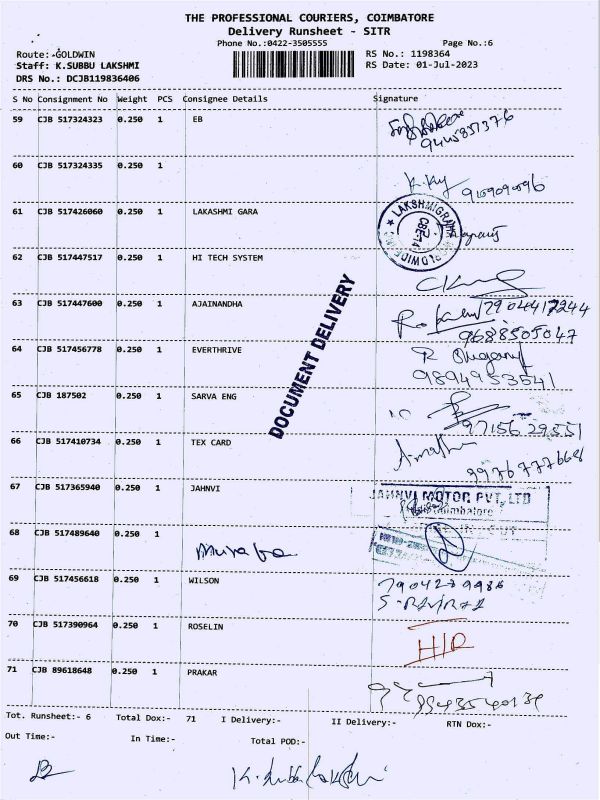 THE PROFESSIONAL COURIERS, COIMBATORE
Delivery Runsheet - SITR
Phone No.:0422-3505555 Page No.:6
Route: GOLDWIN RS No.: 1198364
Staff: K.SUBBU LAKSHMI RS Date: 01-Jul-2023
DRS No.: DCJB119836406
S No Consignment No Weight PCS Consignee Details Signature
59 CJB 517324323 0.250 1 EB
60 CJB 517324335 0.250 1
61 CJB 517426060 0.250 1 LAKASHMI GARA
LAKSHMIGRAPH WORLDWIDE
CBE-14
62 CJB 517447517 0.250 1 HI TECH SYSTEM
63 CJB 517447600 0.250 1 AJAINANDHA 7904417244
9688505047
64 CJB 517456778 0.250 1 EVERTHRIVE
9894953541
DOCUMENT DELIVERY
65 CJB 187502 0.250 1 SARVA ENG
9715629551
66 CJB 517410734 0.250 1 TEX CARD
9976777668
67 CJB 517365940 0.250 1 JAHNVI JAHNVI MOTOR PVT, LTD
Coimbatore
68 CJB 517489640 0.250 1
69 CJB 517456618 0.250 1 WILSON 7904279986
70 CJB 517390964 0.250 1 ROSELIN H/D
71 CJB 89618648 0.250 1 PRAKAR
Tot. Runsheet:- 6 Total Dox:- 71 I Delivery:- II Delivery:- RTN Dox:-
Out Time:- In Time:- Total POD:-
K. Subbu Lakshmi